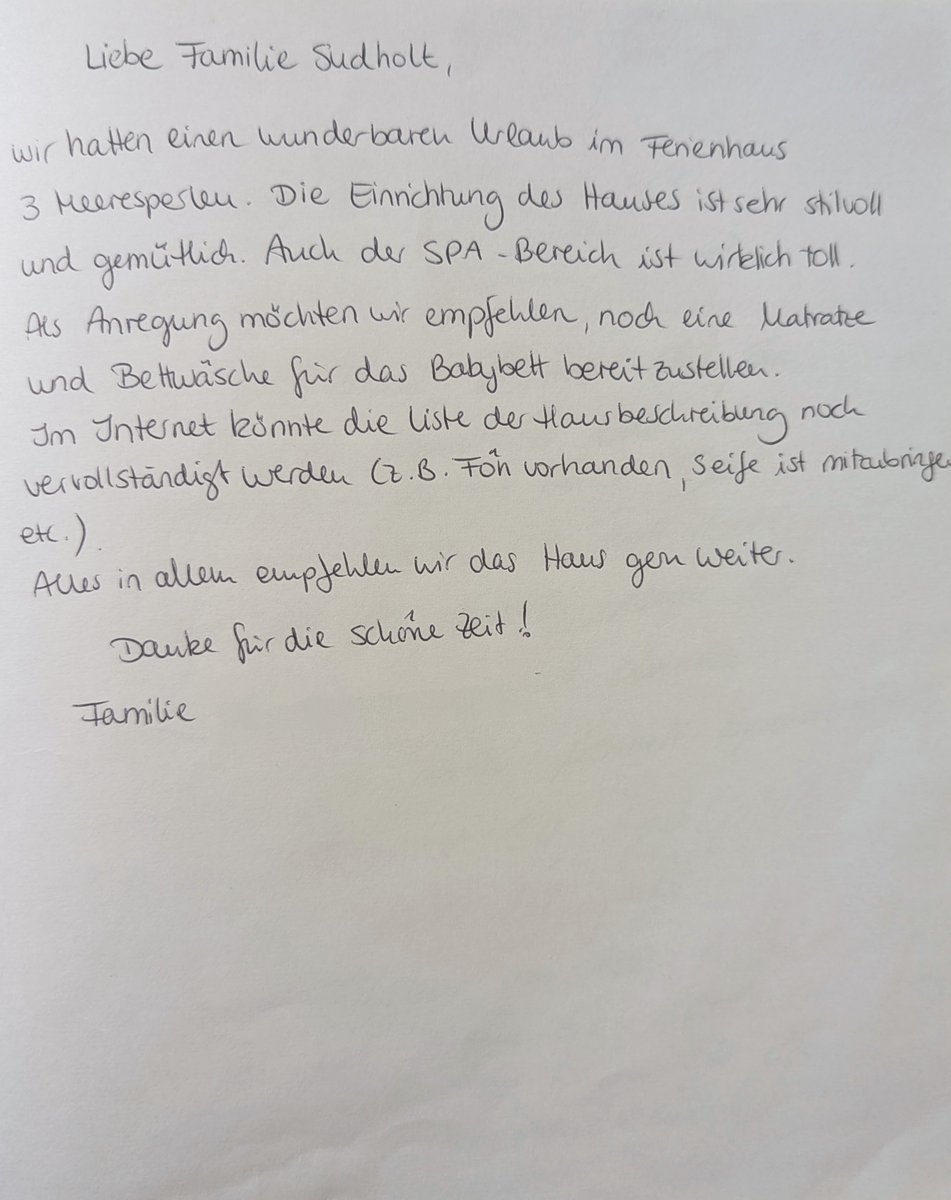 Liebe Familie Sudholt,
wir hatten einen wunderbaren Urlaub im Ferienhaus
3 Meeresperlen. Die Einrichtung des Hauses ist sehr stilvoll
und gemütlich. Auch der SPA-Bereich ist wirklich toll.
Als Anregung möchten wir empfehlen, noch eine Matratze
und Bettwäsche für das Babybett bereitzustellen.
Im Internet könnte die Liste der Hausbeschreibung noch
vervollständigt werden (z.B. Fön vorhanden, Seife ist mitzubringen
etc.).
Alles in allem empfehlen wir das Haus gern weiter.
Danke für die schöne Zeit!
Familie